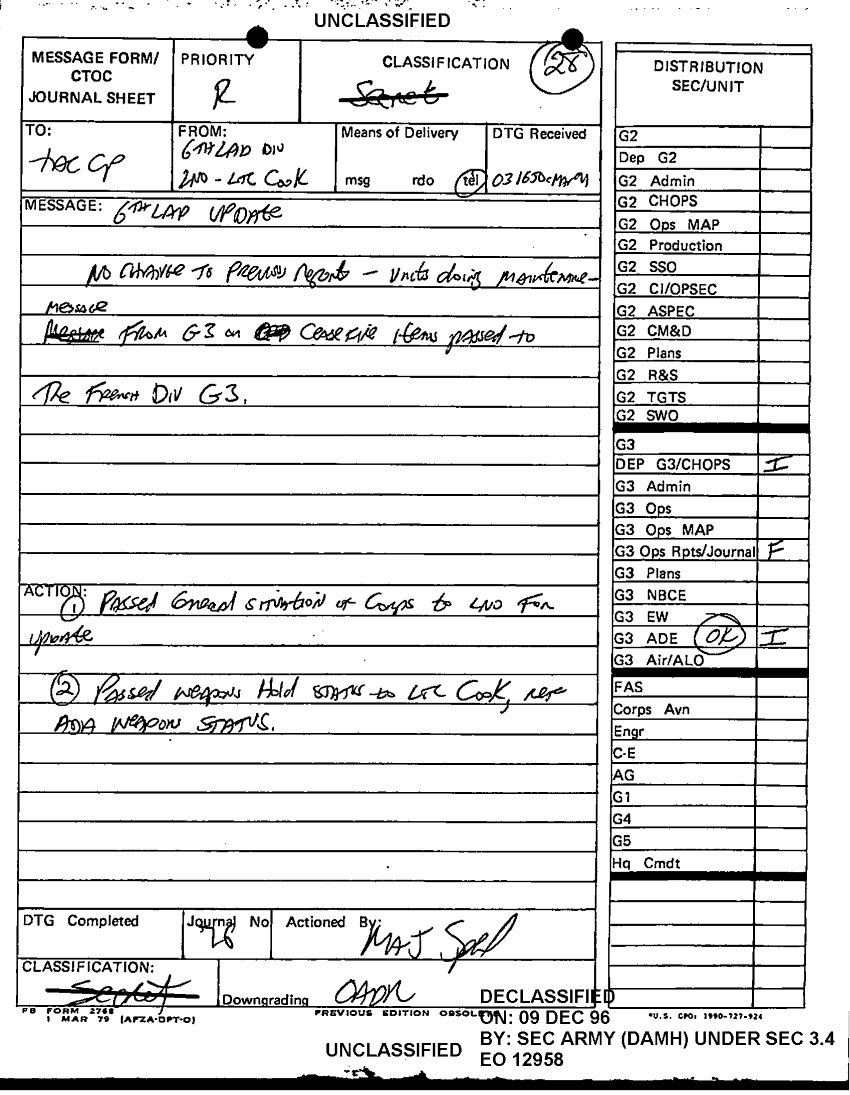 UNCLASSIFIED
MESSAGE FORM/
CTOC
JOURNAL SHEET
PRIORITY
R
CLASSIFICATION
Secret
28
TO:
TAC CP
FROM:
6TH LAD DIV
LNO - LTC COOK
Means of Delivery
msg rdo tel
DTG Received
031650CMar91
MESSAGE: 6TH LAD UPDATE
NO CHANGE TO Previous reports - units doing maintenance -
message
From G3 on Cease Fire items passed to
The French Div G3.
ACTION:
① Passed General situation of Corps to LNO For
update
② Passed weapons Hold status to LTC Cook, new
ADA WEAPON STATUS.
DTG Completed
Journal No
26
Actioned By:
MAJ
CLASSIFICATION:
Secret
Downgrading OADR
FB FORM 2768
1 MAR 79 (AFZA-DPT-O)
PREVIOUS EDITION OBSOLETE
DISTRIBUTION
SEC/UNIT
G2
Dep G2
G2 Admin
G2 CHOPS
G2 Ops MAP
G2 Production
G2 SSO
G2 CI/OPSEC
G2 ASPEC
G2 CM&D
G2 Plans
G2 R&S
G2 TGTS
G2 SWO
G3
DEP G3/CHOPS I
G3 Admin
G3 Ops
G3 Ops MAP
G3 Ops Rpts/Journal F
G3 Plans
G3 NBCE
G3 EW
G3 ADE OK I
G3 Air/ALO
FAS
Corps Avn
Engr
C-E
AG
G1
G4
G5
Hq Cmdt
*U.S. GPO: 1990-727-924
DECLASSIFIED
ON: 09 DEC 96
BY: SEC ARMY (DAMH) UNDER SEC 3.4
EO 12958
UNCLASSIFIED